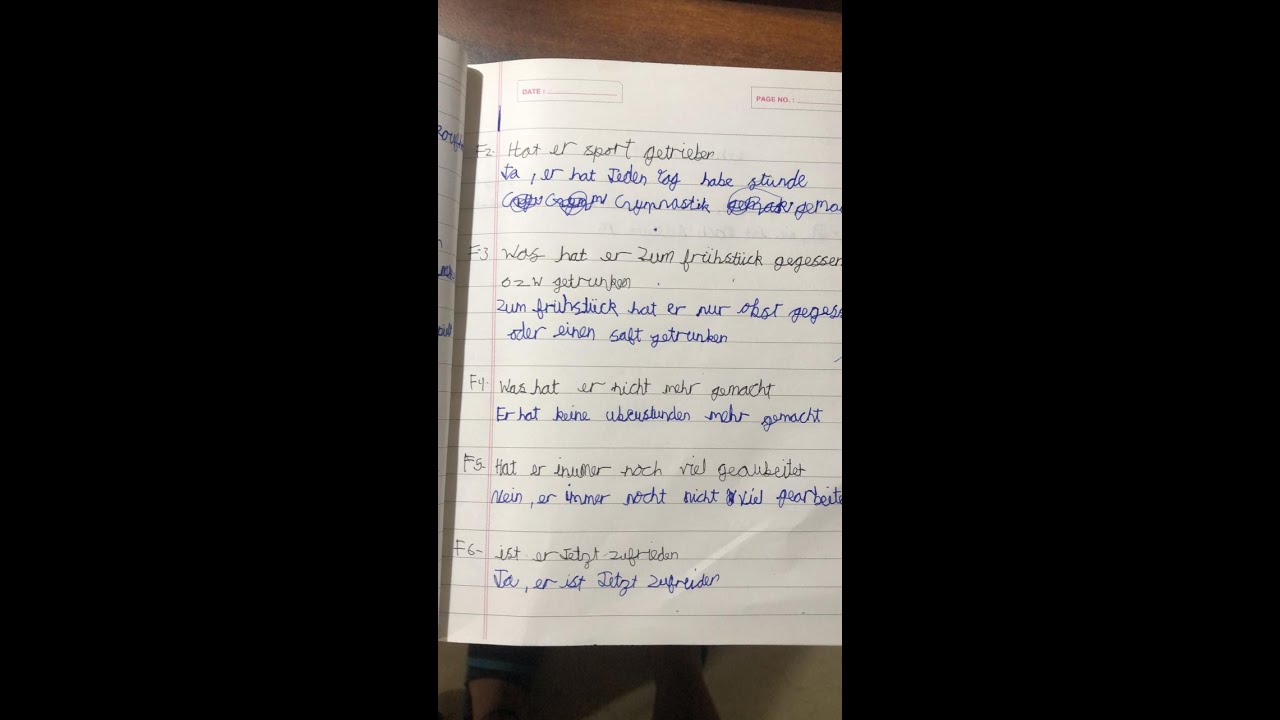 DATE :
PAGE NO. :
F2. Hat er sport getrieben
Ja, er hat Jeden Tag habe stunde
Gymnastik gema
F.3 Was hat er Zum frühstück gegessen
ozw getrunken
Zum frühstück hat er nur obst gegess
oder einen saft getrunken
F4. Was hat er nicht mehr gemacht
Er hat keine uberstunden mehr gemacht
F5- Hat er immer noch viel geaubeitet
Nein, er immer nocht nicht viel gearbeite
F6- ist er Jetzt zufrieden
Ja, er ist Jetzt zufreiden